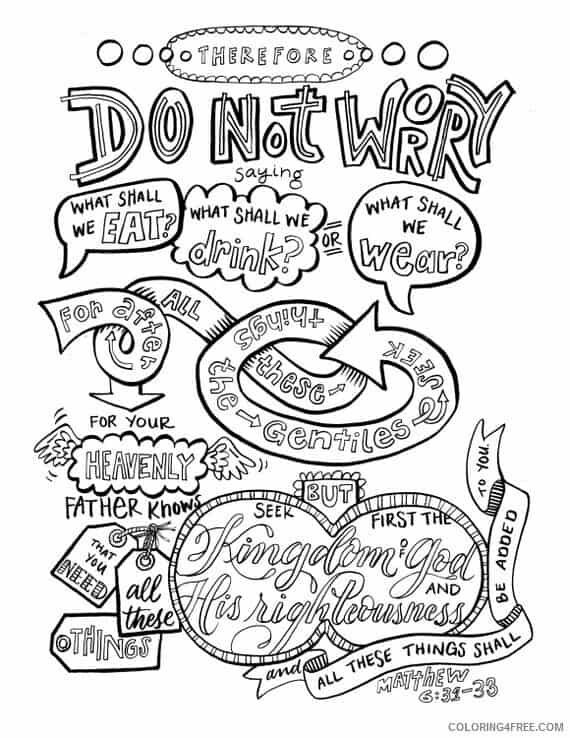 THEREFORE
DO NOT WORRY
saying
WHAT SHALL
WE EAT?
WHAT SHALL WE
drink?
OR
WHAT SHALL
WE
wear?
For after
ALL
these
things
the Gentiles
SEEK
FOR YOUR
HEAVENLY
FATHER KNOWS
THAT
YOU
NEED
all
these
THINGS
BUT
SEEK FIRST THE
Kingdom of God
AND
His righteousness
and ALL THESE THINGS SHALL
BE ADDED
TO YOU.
MATTHEW
6:31-33
COLORING4FREE.COM